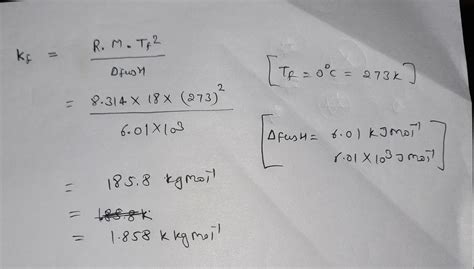 K_f = R. M. T_f² / ΔfusH
[T_f = 0°C = 273K]
= 8.314 × 18 × (273)² / 6.01 × 10³
[ΔfusH = 6.01 KJmol⁻¹
6.01 × 10³ J mol⁻¹]
= 185.8 kgmol⁻¹
=
= 1.858 K kgmol⁻¹